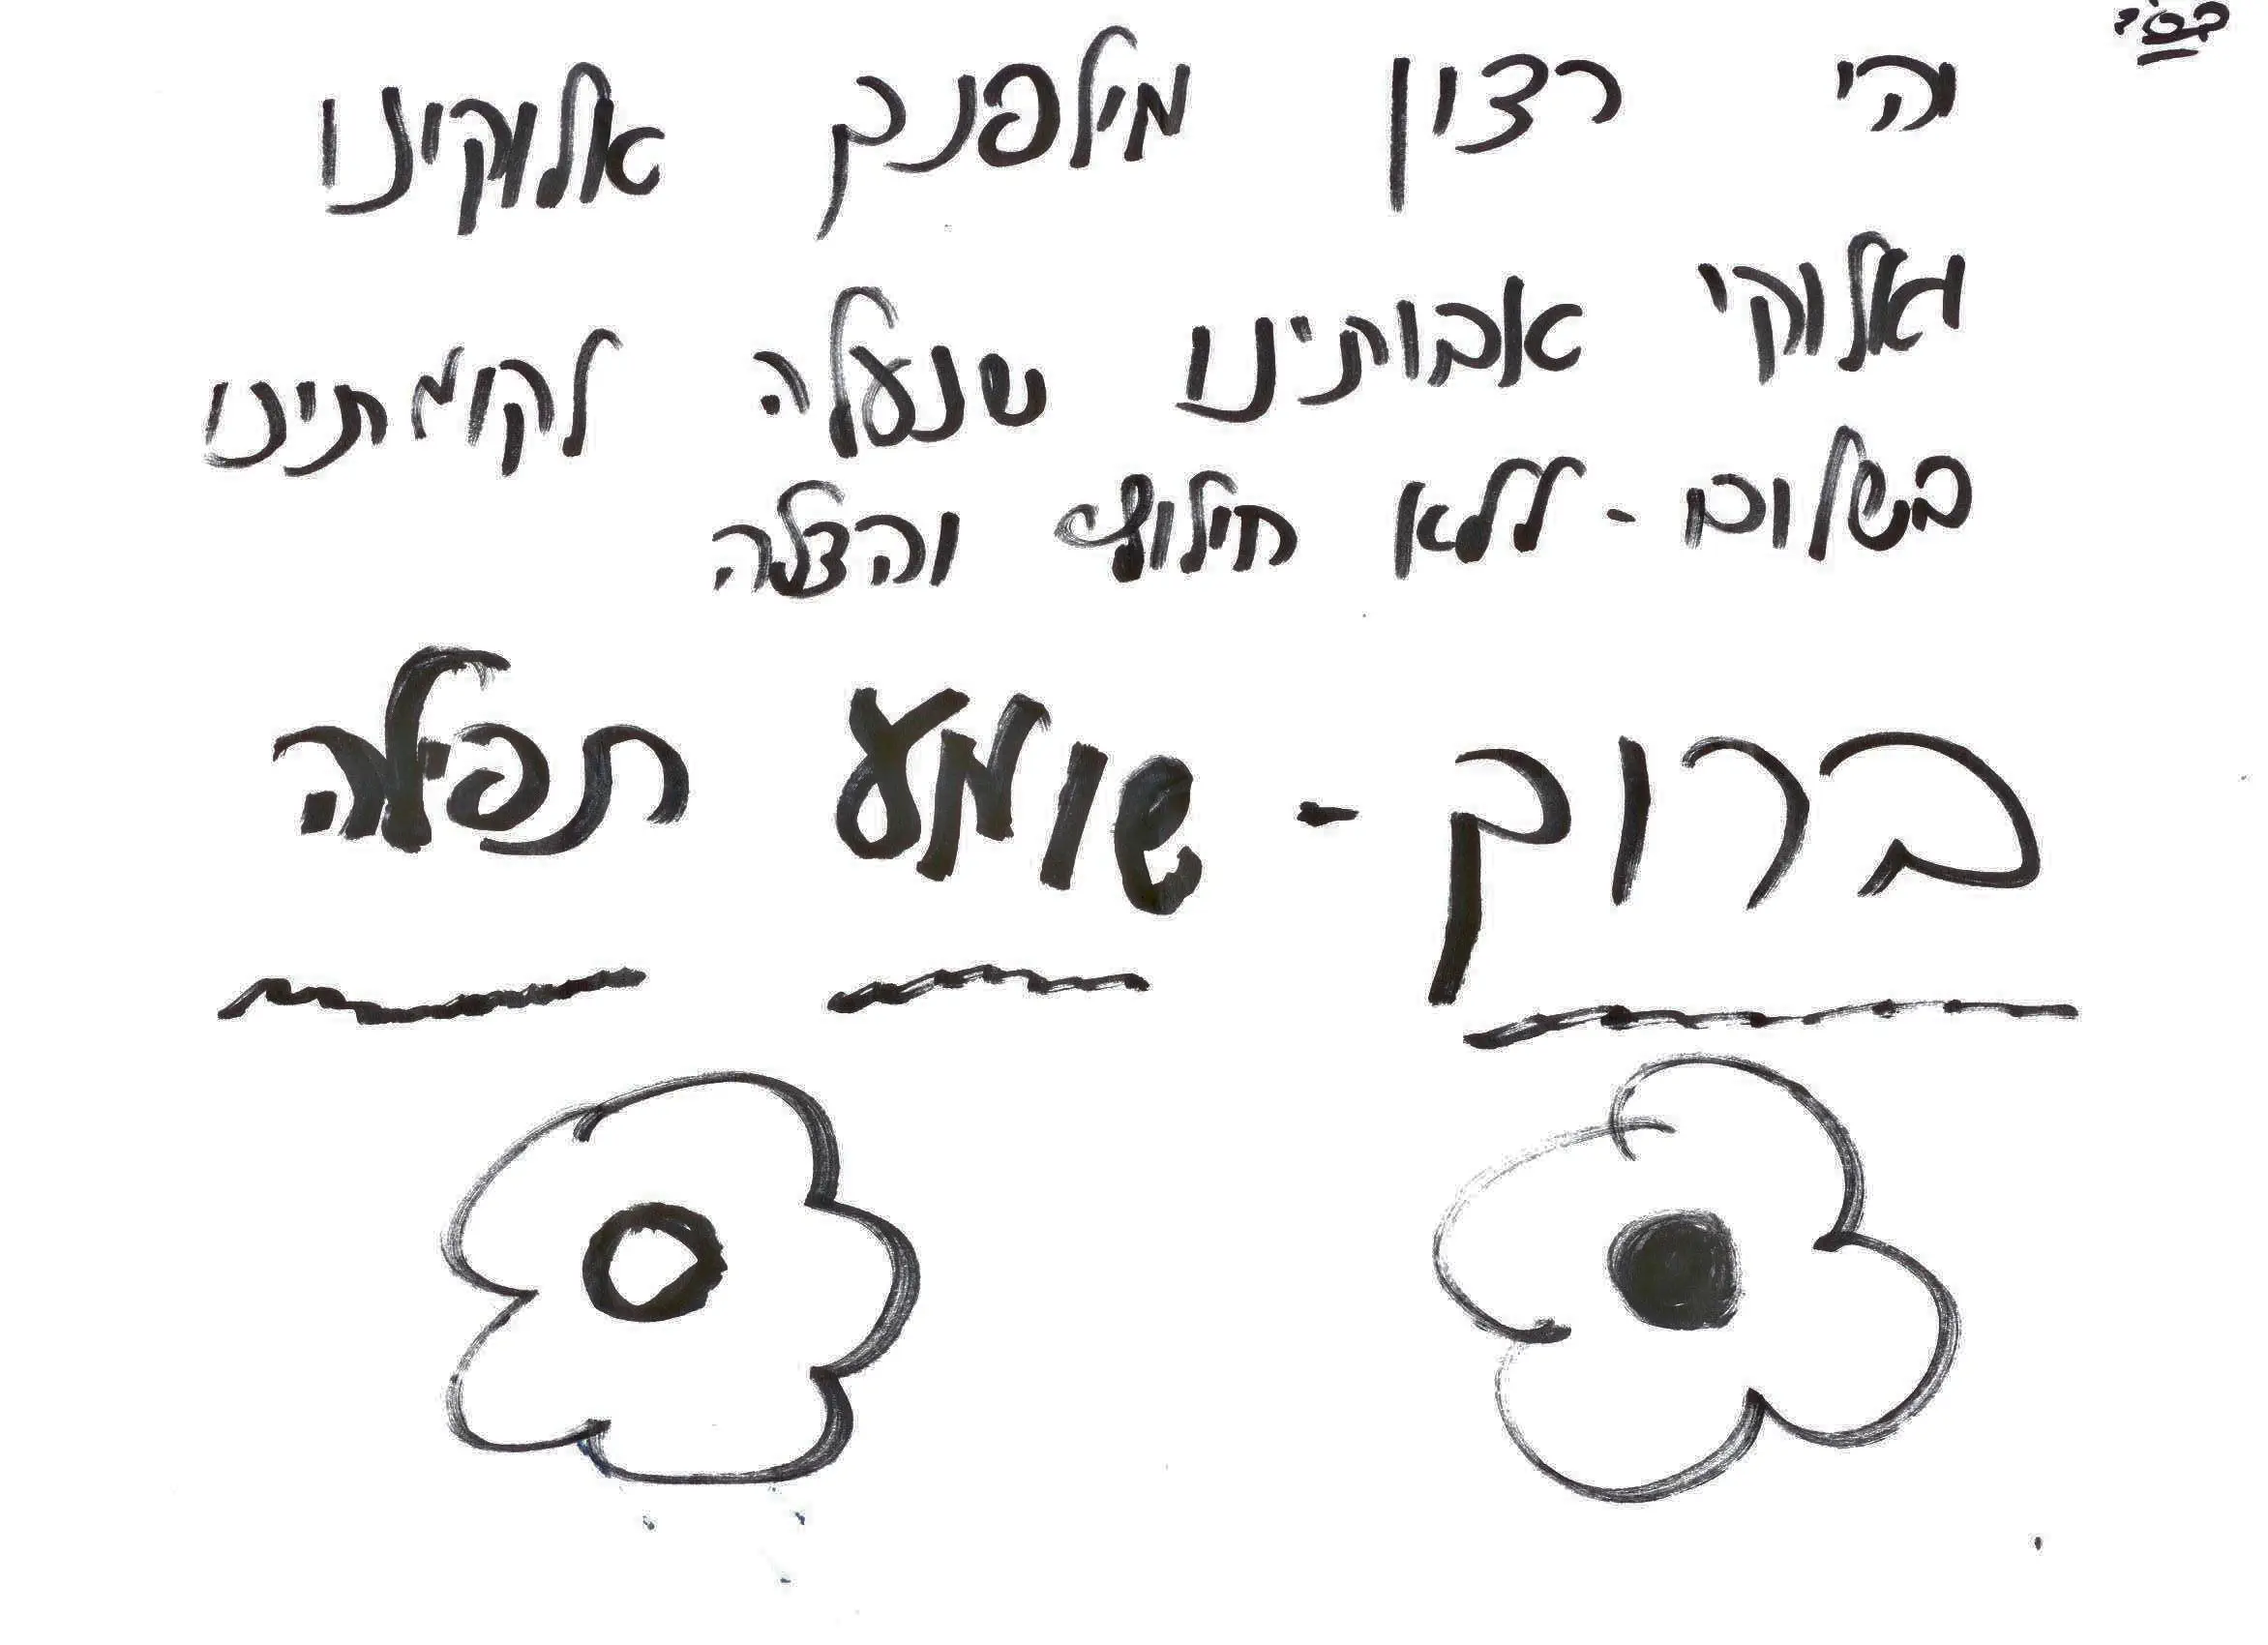 בס"ד
והי רצון מילפנך אלוקינו
ואלוקי אבותינו שנעלה לקומתינו
בשלום - ללא חילוץ והצלה
ברוך - שומע תפילה